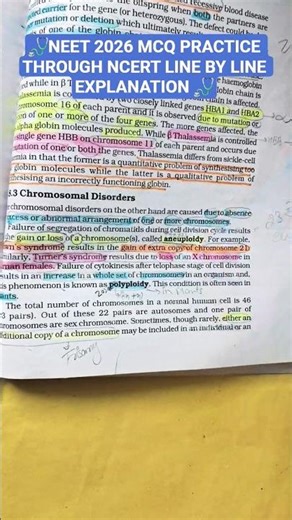 🩺NEET 2026 MCQ PRACTICE
THROUGH NCERT LINE BY LINE
EXPLANATION 🩺
recessive blood disease
the offspring when both the partners are
carrier for the gene (or heterozygous). The defect could
mutation or deletion which ultimately
of one of the globin
haemoglobin
globin chain is affected.
two closely linked genes HBA1 and HBA2
chromosome 16 of each parent and it is observed due to mutation or
of one or more of the four genes. The more genes affected, the
alpha globin molecules produced. While β Thalassemia is controlled
single gene HBB on chromosome 11 of each parent and occurs due
mutation of one or both the genes. Thalassemia differs from sickle-cell
in that the former is a quantitative problem of synthesising too
globin molecules while the latter is a qualitative problem of
synthesising an incorrectly functioning globin.
.3 Chromosomal Disorders
chromosomal disorders on the other hand are caused due to absence
excess or abnormal arrangement of one or more chromosomes.
Failure of segregation of chromatids during cell division cycle results
the gain or loss of a chromosome(s), called aneuploidy. For example,
syndrome results in the gain of extra copy of chromosome 21.
Turner's syndrome results due to loss of an X chromosome in
human females. Failure of cytokinesis after telophase stage of cell division
results in an increase in a whole set of chromosomes in an organism and,
this phenomenon is known as polyploidy. This condition is often seen in
plants.
The total number of chromosomes in a normal human cell is 46
3 pairs). Out of these 22 pairs are autosomes and one pair of
chromosomes are sex chromosome. Sometimes, though rarely, either an
additional copy of a chromosome may be included in an individual or an